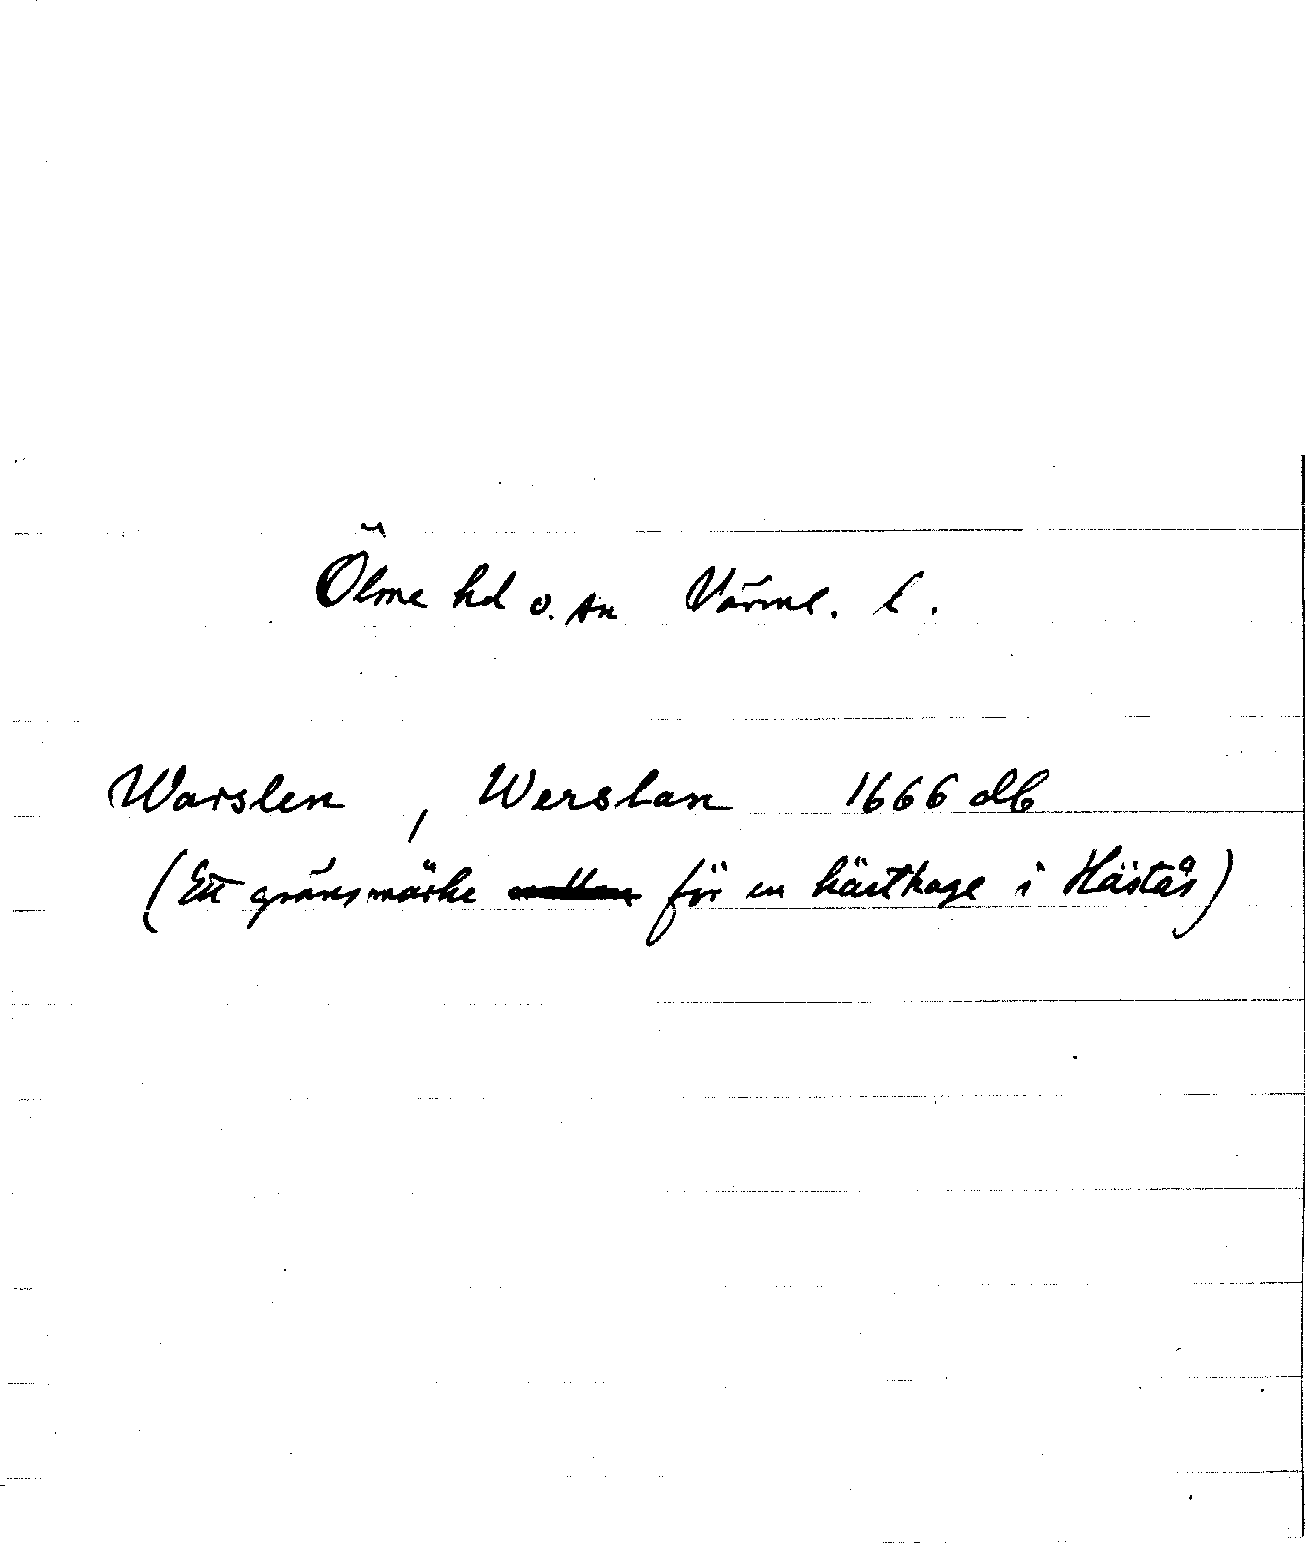 Ölme hd o. sn Värml. l.
Warslen , Werslan 1666 db
(Ett gränsmärke för en hästhage i Hästås)